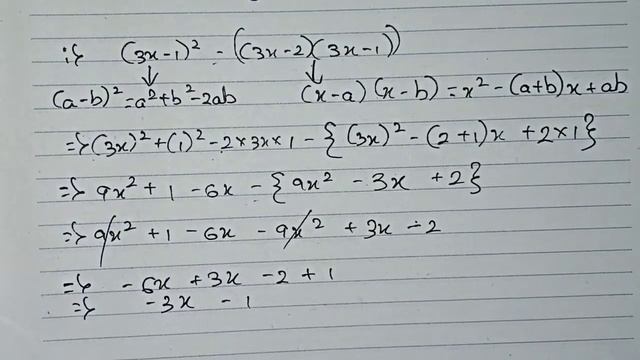 i} (3x-1)² - ((3x-2)(3x-1))
(a-b)² = a²+b²-2ab (x-a)(x-b) = x² - (a+b)x + ab
=} (3x)² + (1)² - 2×3x×1 - {(3x)² - (2+1)x + 2×1}
=} 9x² + 1 - 6x - {9x² - 3x + 2}
=} 9x² + 1 - 6x - 9x² + 3x - 2
=} - 6x + 3x - 2 + 1
=} - 3x - 1